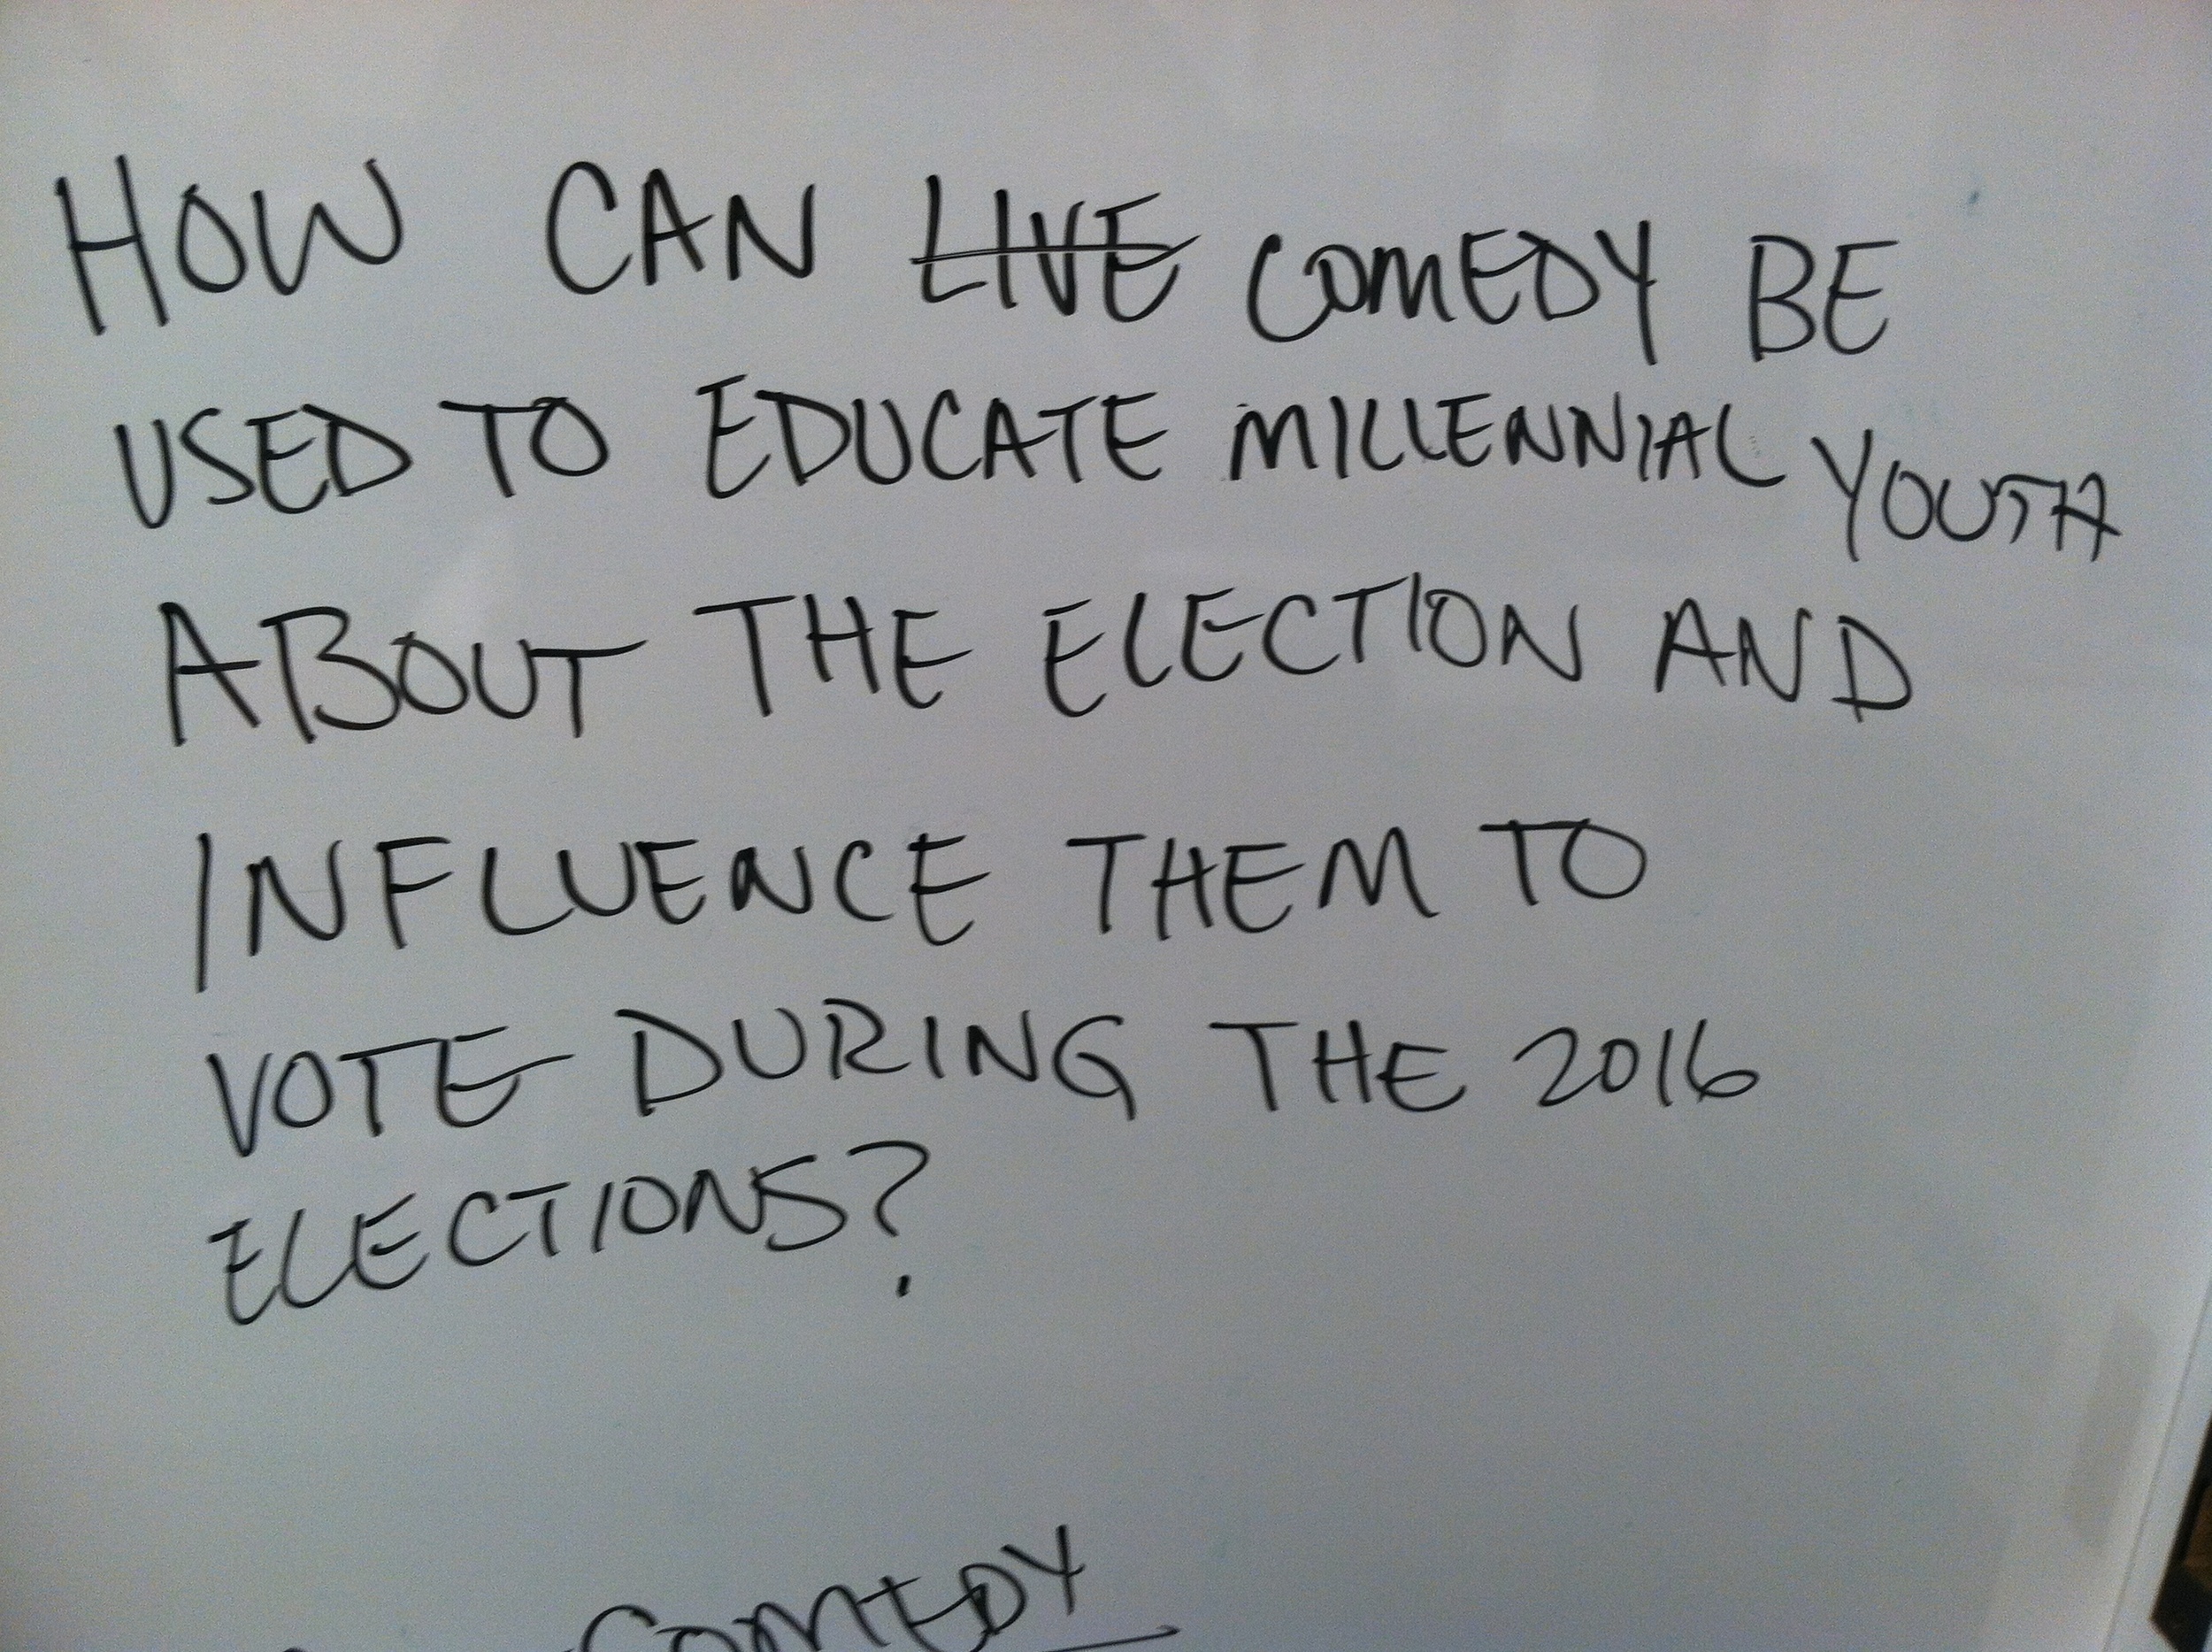 HOW CAN LIVE COMEDY BE
USED TO EDUCATE MILLENNIAL YOUTH
ABOUT THE ELECTION AND
INFLUENCE THEM TO
VOTE DURING THE 2016
ELECTIONS?
COMEDY